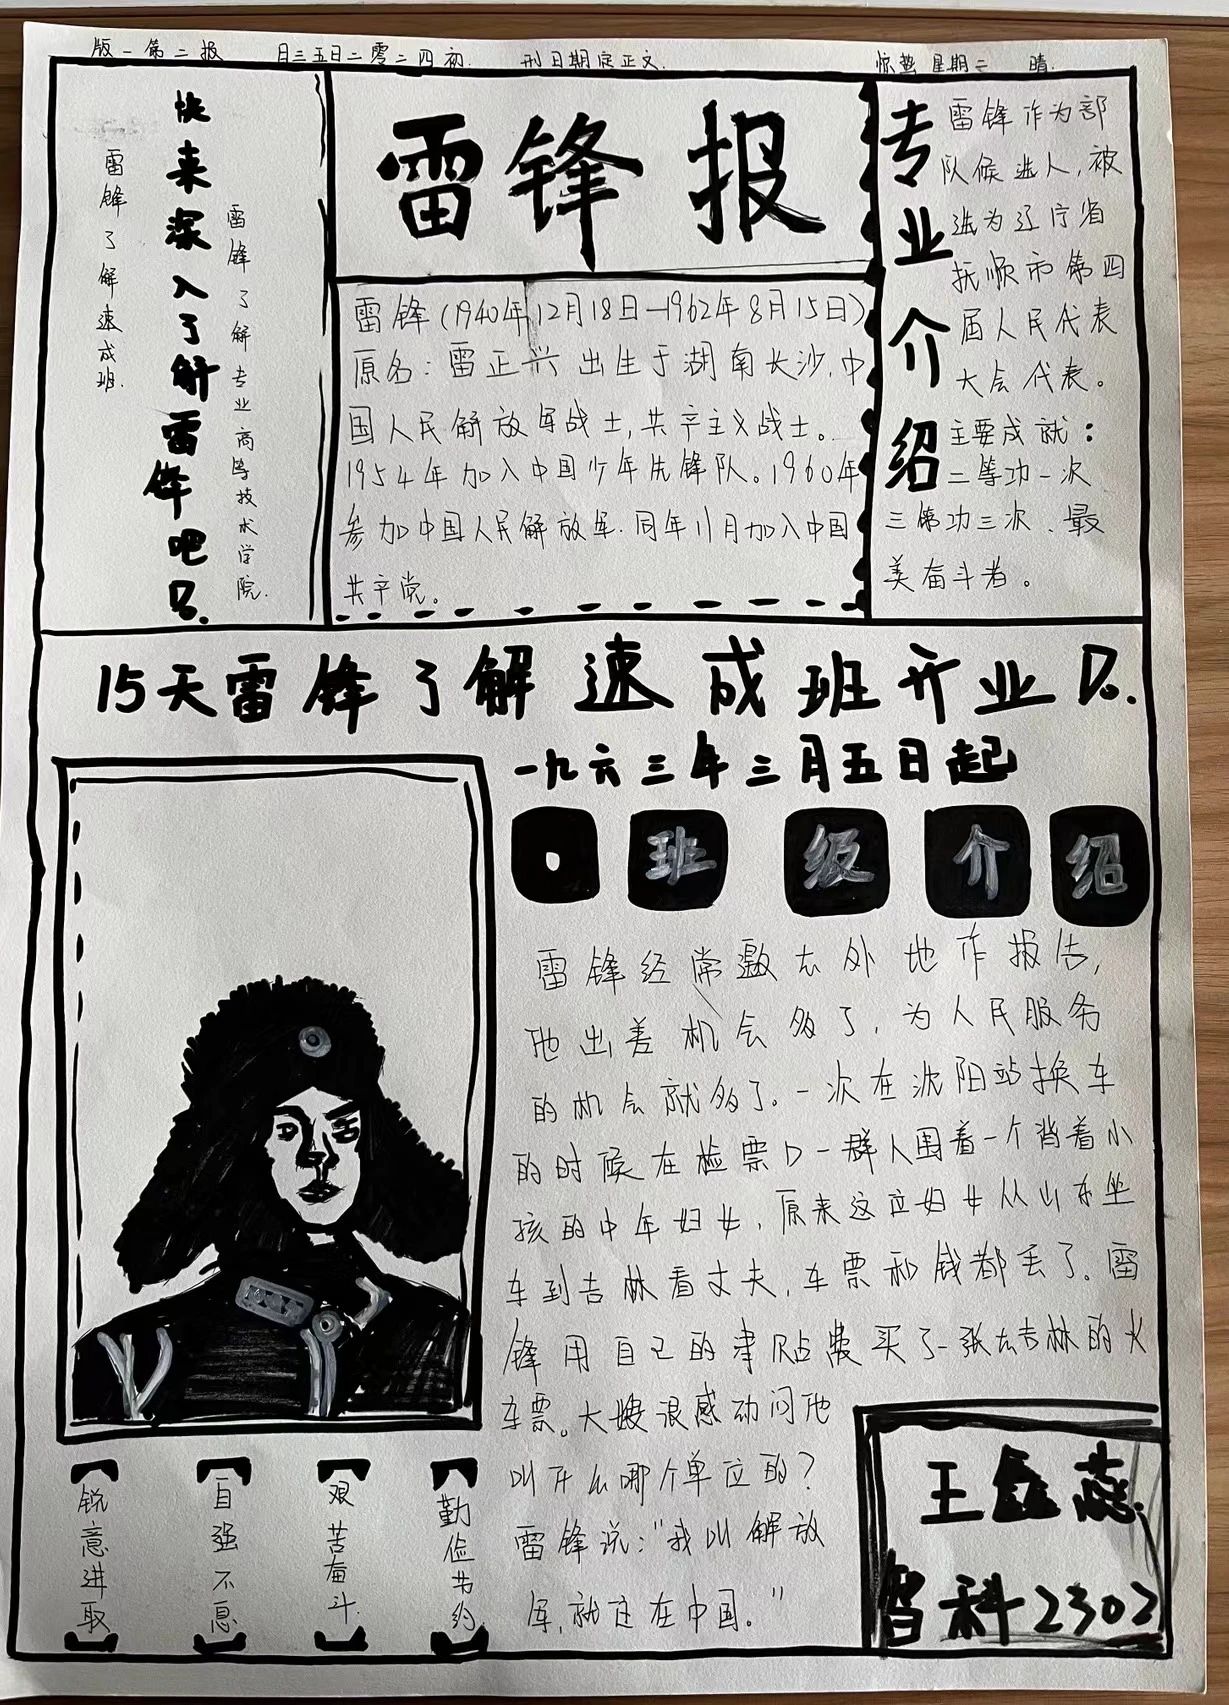 版一第二报 月三五日二零二四初 刑日期定正文 惊蛰 星期二 晴
雷锋了解速成班
快来深入了解雷锋吧
雷锋了解专业商学技术学院
雷锋报
雷锋(1940年12月18日—1962年8月15日)
原名:雷正兴 出生于湖南长沙,中
国人民解放军战士,共产主义战士。
1954年加入中国少年先锋队。1960年
参加中国人民解放军.同年11月加入中国
共产党。
专业介绍
雷锋作为部
队候选人,被
选为辽宁省
抚顺市第四
届人民代表
大会代表。
主要成就:
二等功一次
三等功三次、最
美奋斗者。
15天雷锋了解速成班开业
一九六三年三月五日起
班级介绍
雷锋经常邀去外地作报告,
他出差机会多了,为人民服务
的机会就多了。一次在沈阳站换车
的时候在检票口一群人围着一个背着小
孩的中年妇女,原来这位妇女从山东坐
车到吉林看丈夫,车票和钱都丢了。雷
锋用自己的津贴费买了一张去吉林的火
车票。大嫂很感动问他
叫什么哪个单位的?
雷锋说:“我叫解放
军,就住在中国。”
锐意进取
自强不息
艰苦奋斗
勤俭节约
王鑫蕊
智科2302